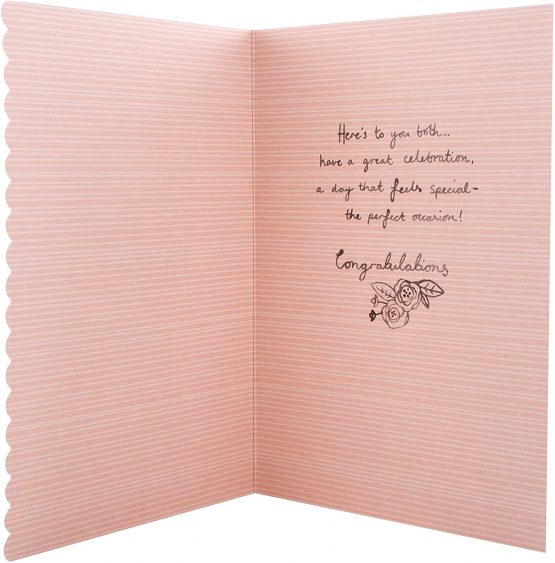 Here's to you both...
have a great celebration,
a day that feels special-
the perfect occasion!
Congratulations